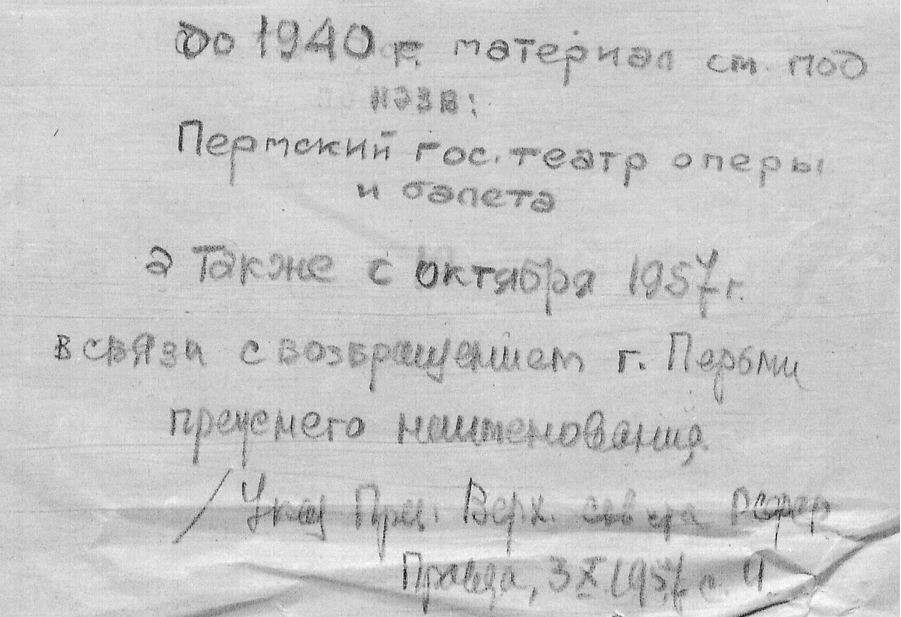 до 1940 г. материал см. под
назв:
Пермский гос. театр оперы
и балета
а также с октября 1957 г.
в связи с возвращением г. Перьми
прежнего наименования
/ Указ През. Верх. совета РСФСР
Правда, 3 X 1957 с. 4.